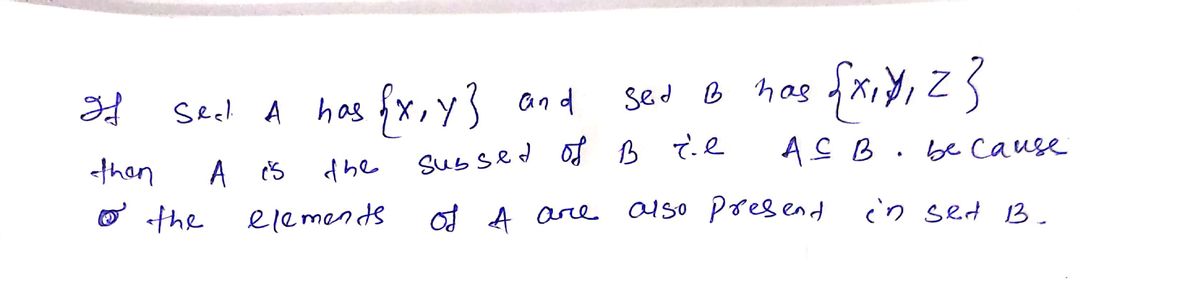 If set A has {x, y} and set B has {x, y, z}
then A is the subset of B i.e A ⊆ B. because
the elements of A are also present in set B.